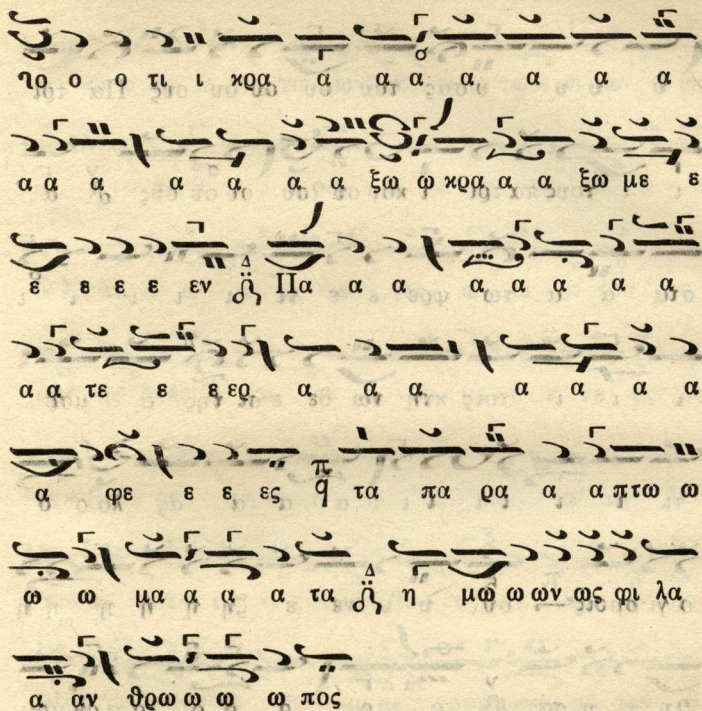 ο ο ο τι ι κρα α α α α α α α
α α α α α α α ξω ω κρα α α ξω με ε
ε ε ε ε εν Πα α α α α α α
α α τε ε ε ερ α α α α α α α
α φε ε ε ες τα πα ρα α α πτω ω
ω ω μα α α α τα η μω ω ων ως φι λα
α αν θρω ω ω ω πος